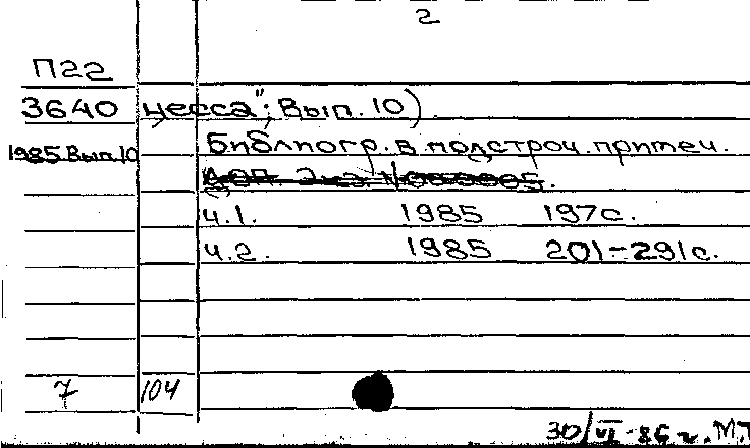 2
П22
3640 цесса"; Вып. 10)
1985. Вып. 10 Библиогр. в подстроч. примеч.
ч. 1. 1985 197 с.
ч. 2. 1985 201-291 с.
7 104
30/VI-86 г.